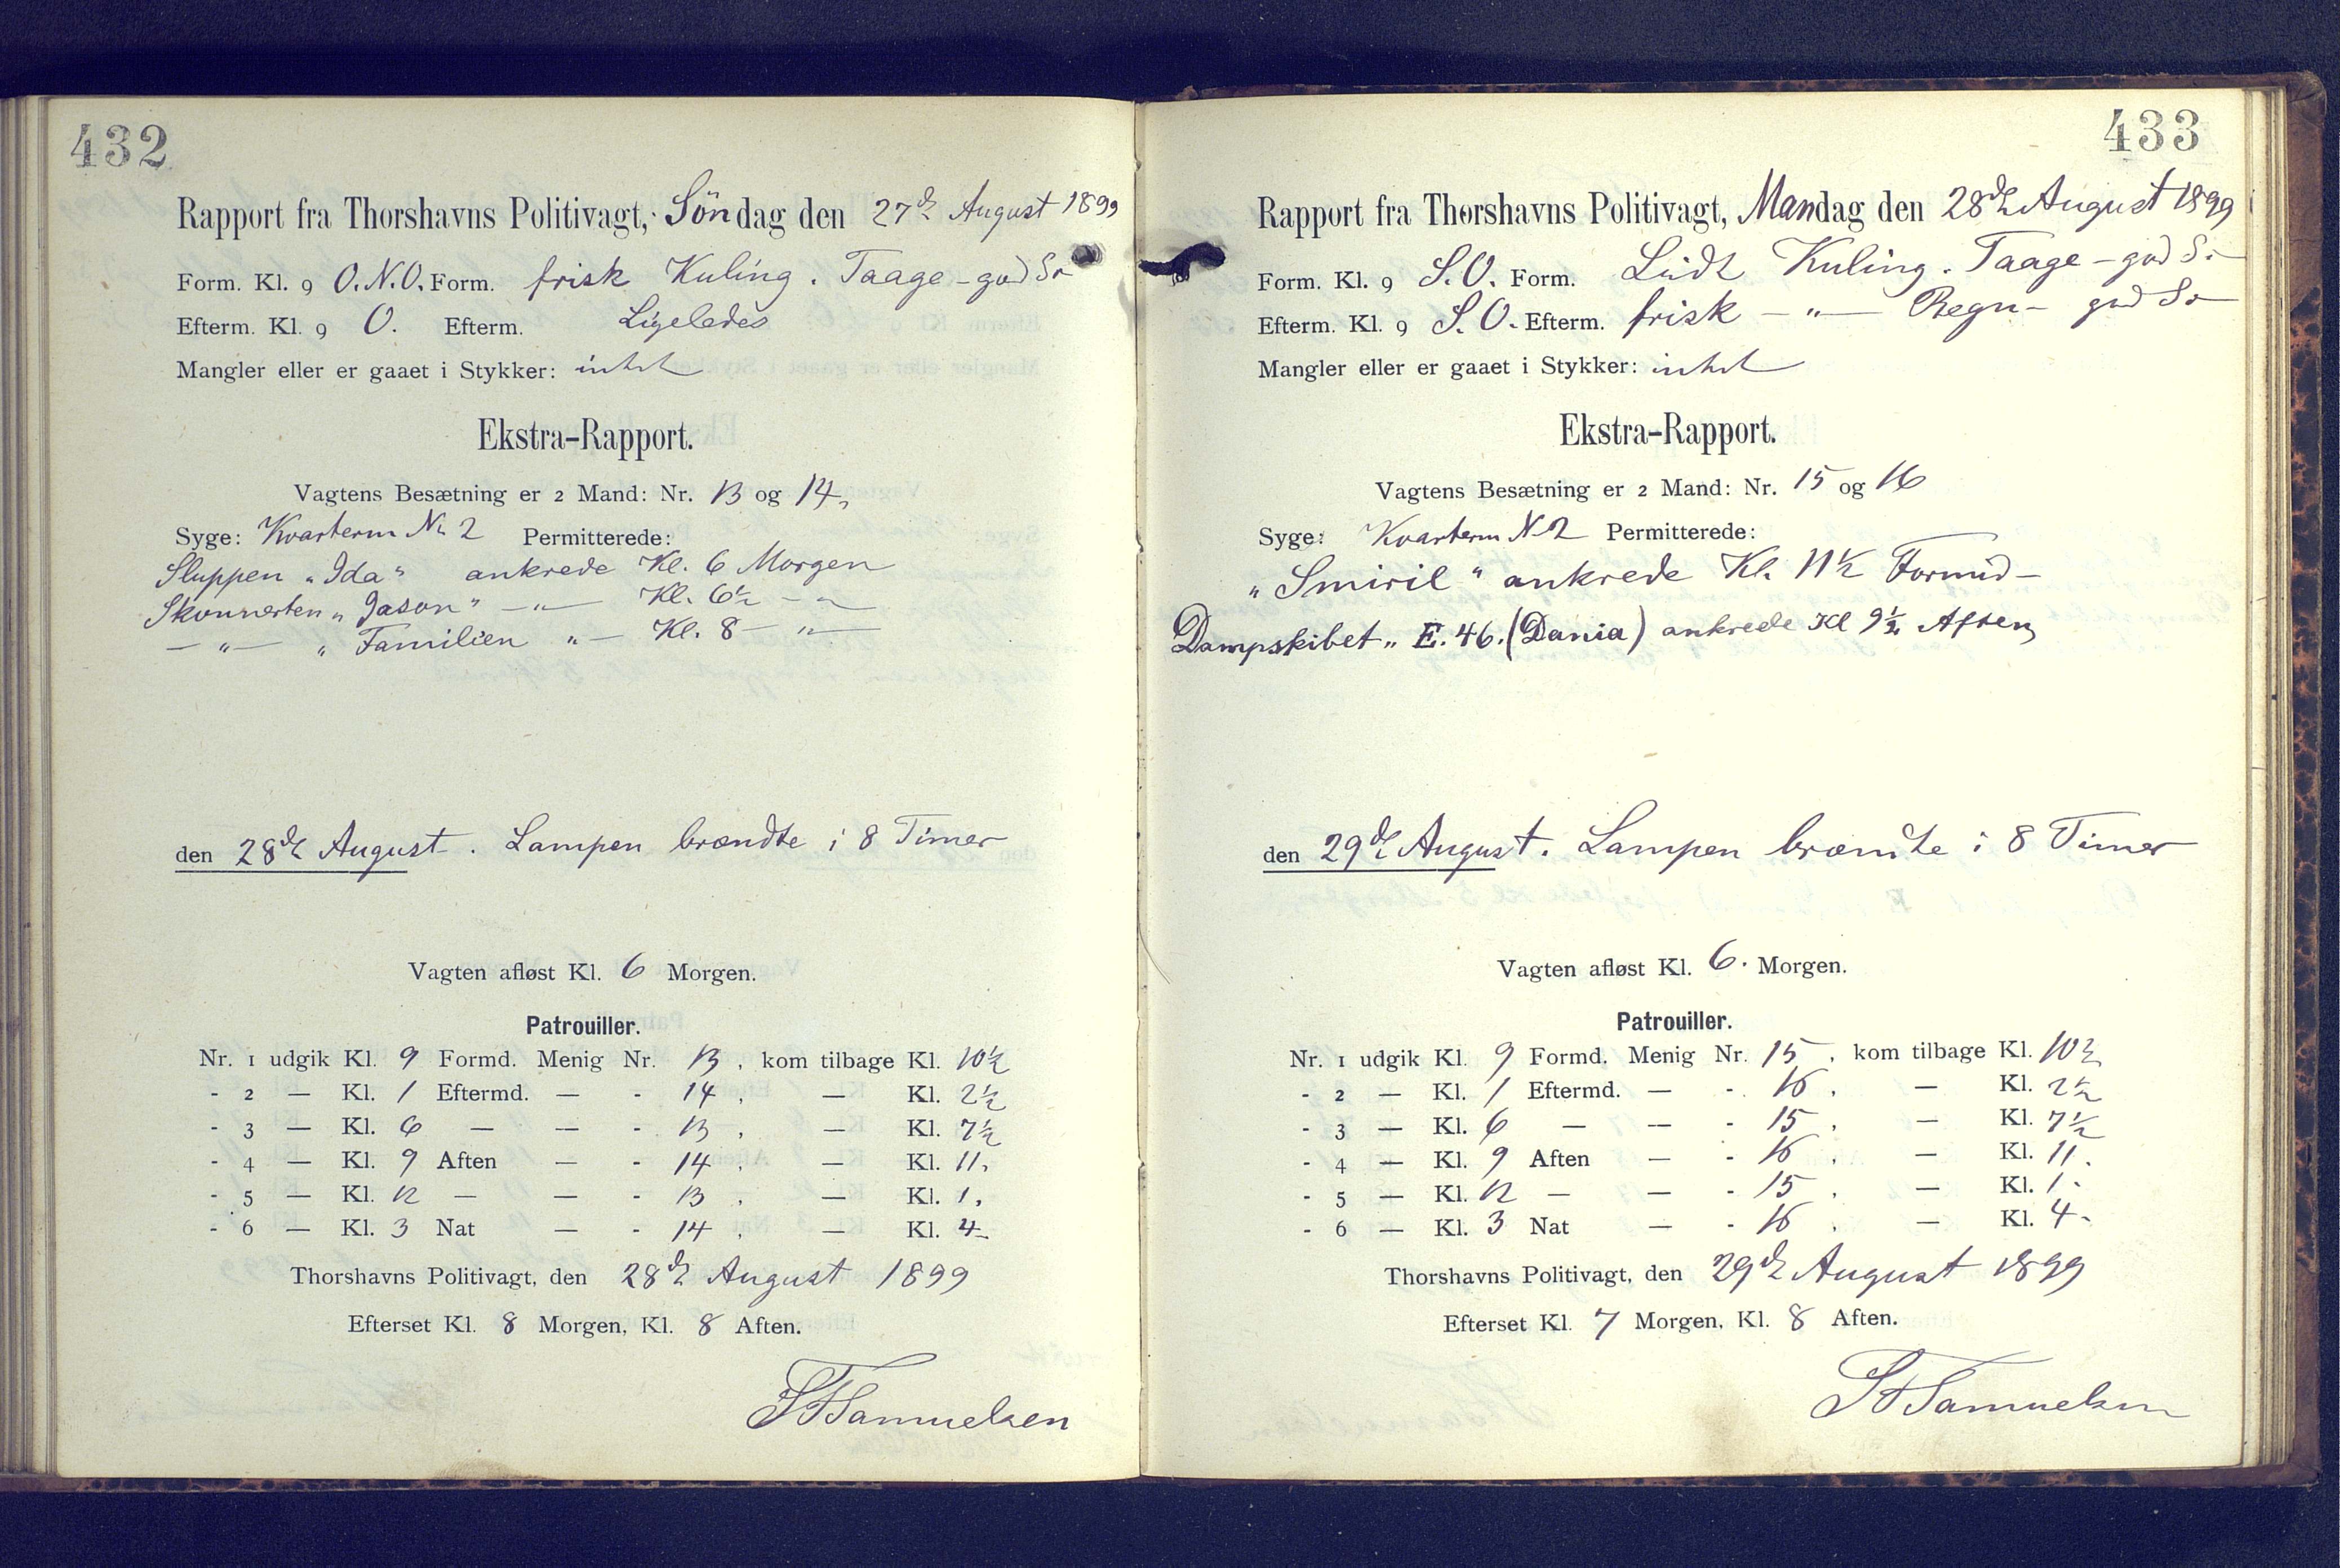 432
Rapport fra Thorshavns Politivagt, Söndag den 27de August 1899
Form. Kl. 9 O.N.O. Form. frisk Kuling. Taage - god Sø
Efterm. Kl. 9 O. Efterm. Ligeledes
Mangler eller er gaaet i Stykker: intet
Ekstra-Rapport.
Vagtens Besætning er 2 Mand: Nr. 13 og 14,
Syge: Kvarterm Nr 2 Permitterede:
Sluppen „Ida" ankrede Kl. 6 Morgen
Skonnerten „Jason" — „ — Kl. 6½ — „
— „ — „Familien „ — Kl. 8 — „ —
den 28de August. Lampen brændte i 8 Timer
Vagten afløst Kl. 6 Morgen.
Patrouiller.
Nr. 1 udgik Kl. 9 Formd. Menig Nr. 13, kom tilbage Kl. 10½
- 2 — Kl. 1 Eftermd. — - 14, — Kl. 2½
- 3 — Kl. 6 — — - 13, — Kl. 7½
- 4 — Kl. 9 Aften — - 14, — Kl. 11,
- 5 — Kl. 12 — — - 13, — Kl. 1,
- 6 — Kl. 3 Nat — - 14, — Kl. 4-
Thorshavns Politivagt, den 28de August 1899
Efterset Kl. 8 Morgen, Kl. 8 Aften.
Samuelsen
433
Rapport fra Thorshavns Politivagt, Mandag den 28de August 1899
Form. Kl. 9 S.O. Form. Lidt Kuling. Taage - god Sø
Efterm. Kl. 9 S.O. Efterm. frisk — „ — Regn - god Sø
Mangler eller er gaaet i Stykker: intet
Ekstra-Rapport.
Vagtens Besætning er 2 Mand: Nr. 15 og 16
Syge: Kvarterm N 2 Permitterede:
„Smiril" ankrede Kl. 11½ Formid-
Dampskibet „E. 46. (Dania) ankrede Kl 9½ Aften
den 29de August. Lampen brændte i 8 Timer
Vagten afløst Kl. 6. Morgen.
Patrouiller.
Nr. 1 udgik Kl. 9 Formd. Menig Nr. 15, kom tilbage Kl. 10½
- 2 — Kl. 1 Eftermd. — - 16, — Kl. 2½
- 3 — Kl. 6 — — - 15, — Kl. 7½
- 4 — Kl. 9 Aften — - 16, — Kl. 11.
- 5 — Kl. 12 — — - 15, — Kl. 1.
- 6 — Kl. 3 Nat — - 16, — Kl. 4-
Thorshavns Politivagt, den 29de August 1899
Efterset Kl. 7 Morgen, Kl. 8 Aften.
Samuelsen